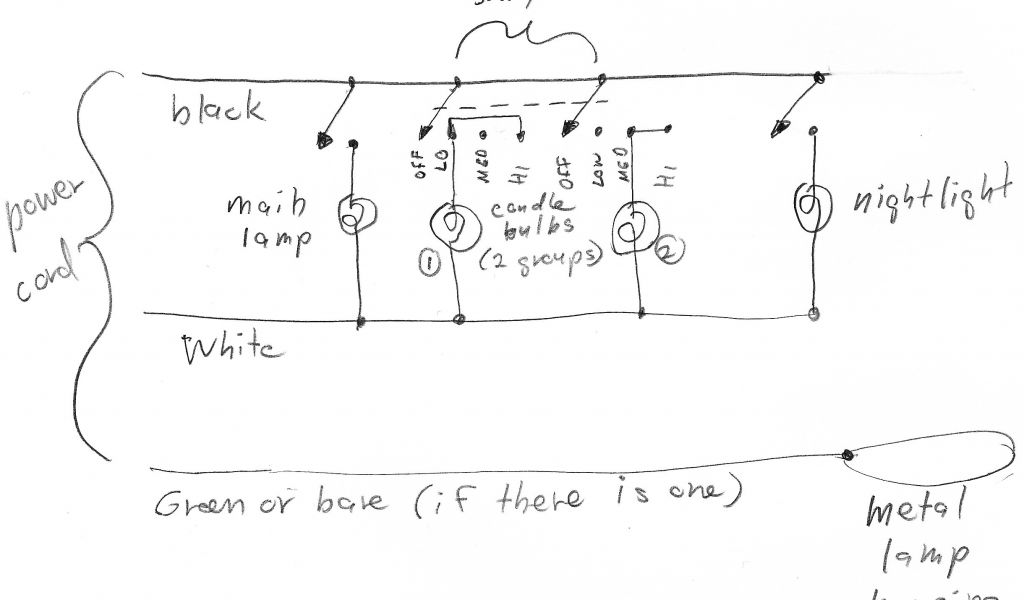 black
power
cord
OFF
LO
MED
HI
OFF
LOW
MED
HI
main
lamp
candle
bulbs
(2 groups)
1
2
nightlight
White
Green or bare (if there is one)
metal
lamp